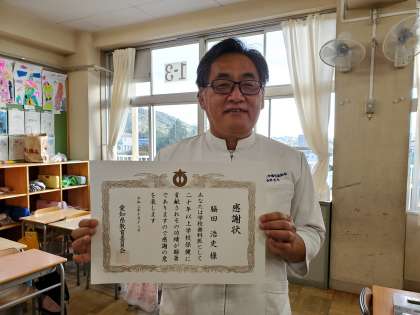 1-3
感謝状
脇田 浩史 様
あなたは学校歯科医として
二十年以上学校保健に
貢献されその功績が顕著
でありますので感謝の意
を表します
愛知県教育委員会